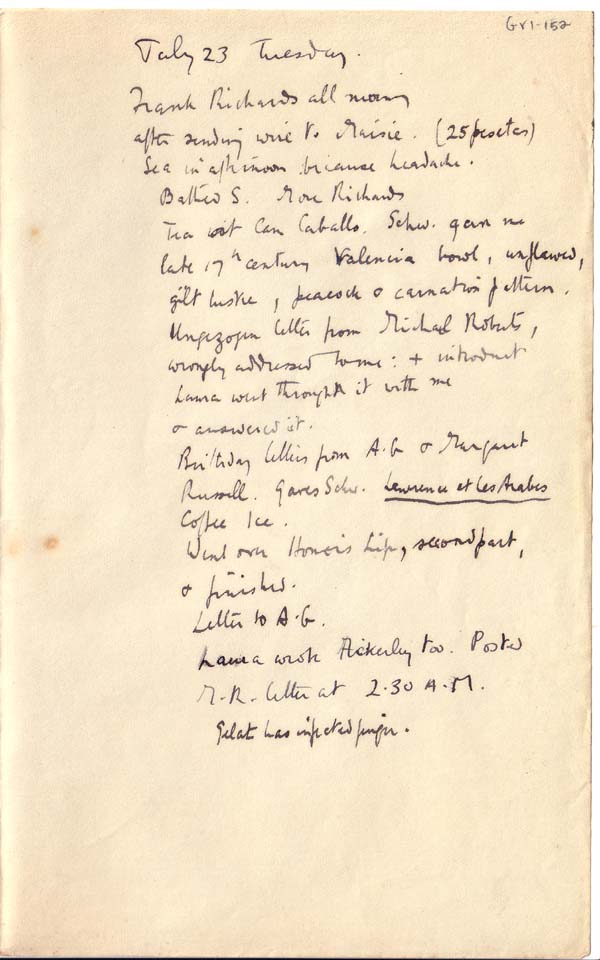 GV1-152
July 23 Tuesday.
Frank Richards all morning
after sending wire to Maisie. (25 pesetas)
Sea in afternoon because headache.
Bathed S. More Richards
Tea at Can Caballo. Schw. gave me
late 17th century Valencia bowl, unflawed,
gilt lustre, peacock & carnation pattern.
Ungezogen letter from Michael Roberts,
wrongly addressed to me: + introduct
Laura went through it with me
& answered it.
Birthday letters from A.G & Margaret
Russell. Gave Schw. Lawrence et Les Arabes
Coffee Ice.
Went over Honor's Life, second part,
& finished.
Letter to A.G.
Laura wrote Ackerley too. Posted
M.R. letter at 2.30 A.M.
Gelat has infected finger.